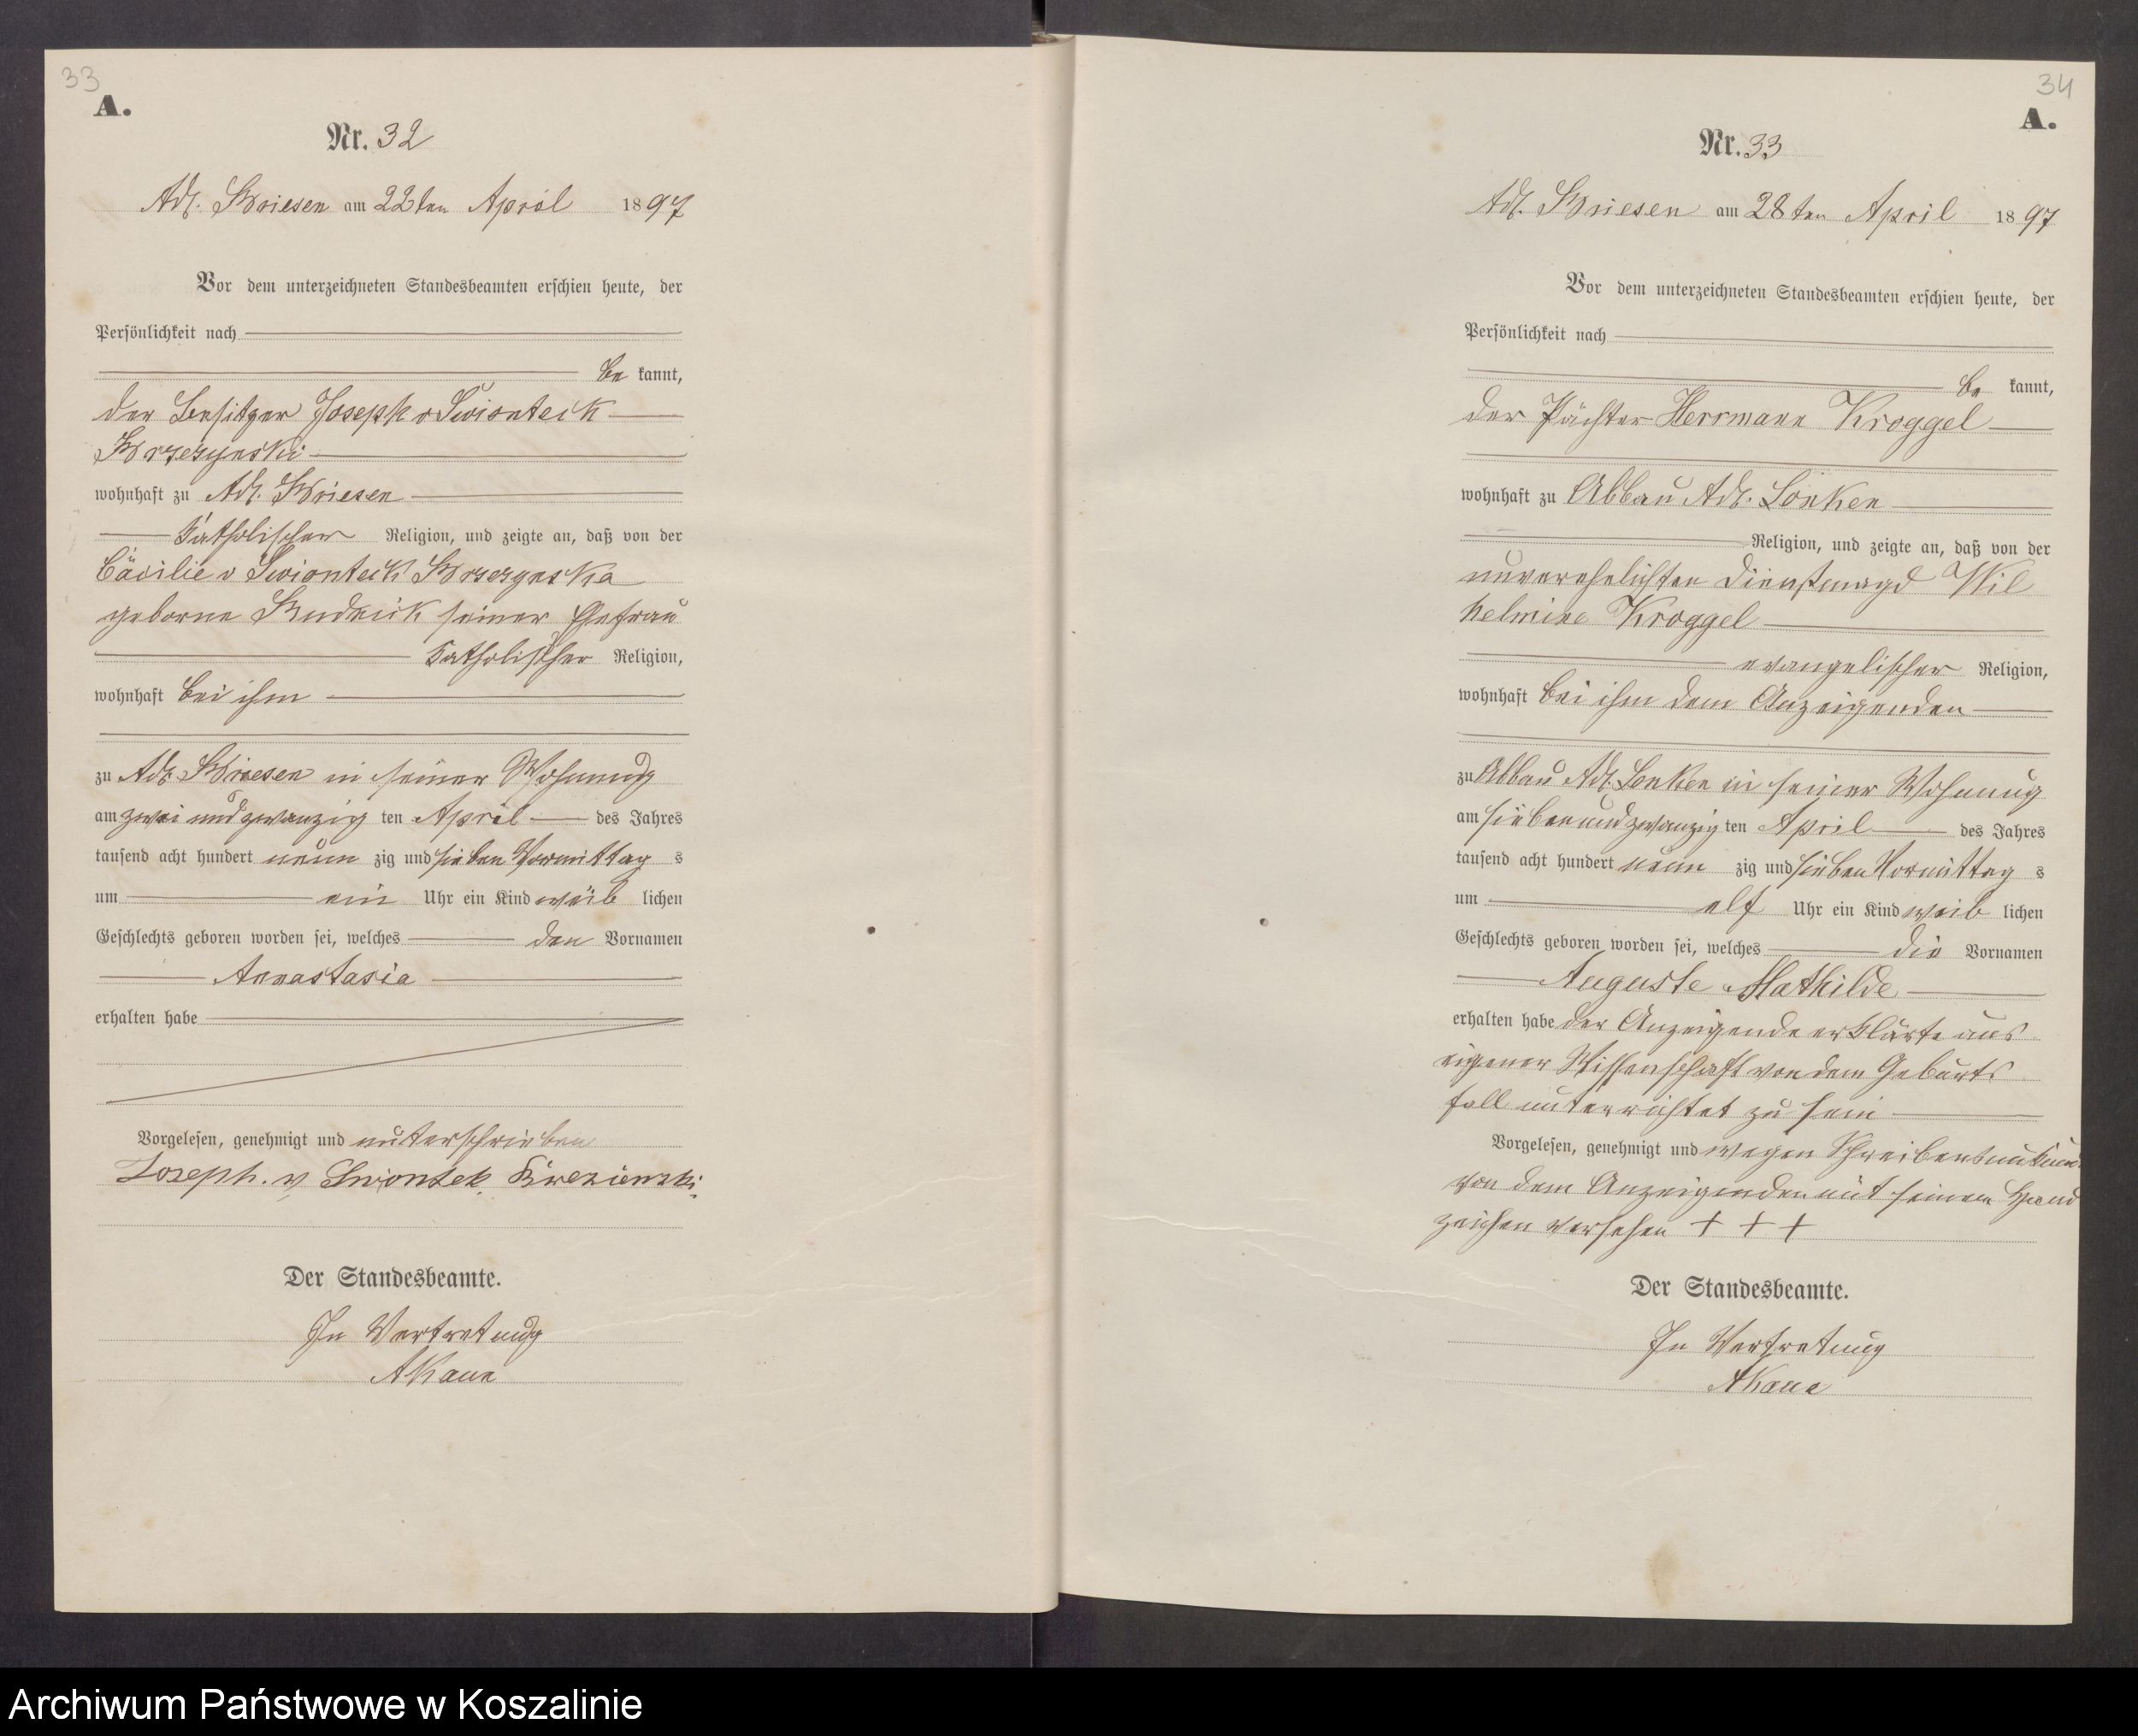 33
A.
Nr. 32
Adl. Briesen am 22ten April 1897
Vor dem unterzeichneten Standesbeamten erschien heute, der
Persönlichkeit nach
be kannt,
der Besitzer Joseph v Swionteck
Brzezynski
wohnhaft zu Adl. Briesen
katholischer Religion, und zeigte an, daß von der
Cäcilie v Swionteck Brzezynska
geborne Rudnick seiner Ehefrau
katholischer Religion,
wohnhaft bei ihm
zu Adl Briesen in seiner Wohnung
am zwei und zwanzig ten April des Jahres
tausend acht hundert neun zig und sieben Vormittag s
um ein Uhr ein Kind weib lichen
Geschlechts geboren worden sei, welches den Vornamen
Annastasia
erhalten habe
Vorgelesen, genehmigt und unterschrieben
Joseph. v Swiontek
Der Standesbeamte.
In Vertretung
34
A.
Nr. 33
Adl. Briesen am 28ten April 1897
Vor dem unterzeichneten Standesbeamten erschien heute, der
Persönlichkeit nach
be kannt,
der Pächter Herrmann Kroggel
wohnhaft zu Abbau Adl. Lonken
Religion, und zeigte an, daß von der
unverehelichten Dienstmagd Wil
helmine Kroggel
evangelischer Religion,
wohnhaft bei ihm dem Anzeigenden
zu Abbau Adl. Lonken in seiner Wohnung
am sieben und zwanzig ten April des Jahres
tausend acht hundert neun zig und sieben Vormittag s
um elf Uhr ein Kind weib lichen
Geschlechts geboren worden sei, welches die Vornamen
Auguste Mathilde
erhalten habe der Anzeigende erklärte aus
eigener Wissenschaft von dem Geburts
fall unterrichtet zu sein
Vorgelesen, genehmigt und wegen
von dem Anzeigenden mit seinem Hand
zeichen versehen + + +
Der Standesbeamte.
In Vertretung
Archiwum Państwowe w Koszalinie